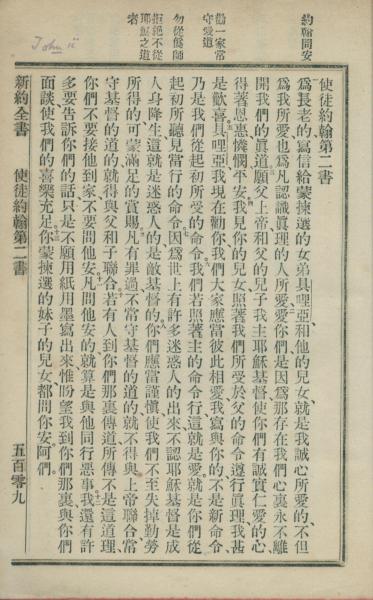 約翰問安
勸一家常
守愛道
勿從僞師
拒絕不從
耶穌之道
者
John ii
使徒約翰第二書
為長老的寫信給蒙揀選的女弟具哩亞和他的兒女就是我誠心所愛的不但
為我所愛也為凡認識真理的人所愛愛你們是因為那存在我們心裏永不離
開我們的真道願父上帝和父的兒子我主耶穌基督使你們有誠實仁愛的心
得著恩惠憐憫平安我見你的兒女照著我們所受於父的命令遵行真理我甚
是歡喜具哩亞我現在勸你我們大家應當彼此相愛我寫與你的不是新命令
乃是我們從起初所受的命令我們若照著主的命令行這就是愛就是你們從
起初所聽見當行的命令因為世上有許多迷惑人的出來不認耶穌基督是成
人身降生這就是迷惑人的是敵基督的你們應當謹慎使我們不至失掉勤勞
所得的可蒙滿足的賞賜凡有罪過不常守基督的道的就不得與上帝聯合常
守基督的道的就得與父和子聯合若有人到你們那裏傳道所傳不是這道理
你們不要接他到家不要問他安凡問他安的就算是與他同行惡事我還有許
多要告訴你們的話只是不願用紙用墨寫出來惟盼望我到你們那裏與你們
面談使我們的喜樂充足你蒙揀選的妹子的兒女都問你安阿們
新約全書
使徒約翰第二書
五百零九